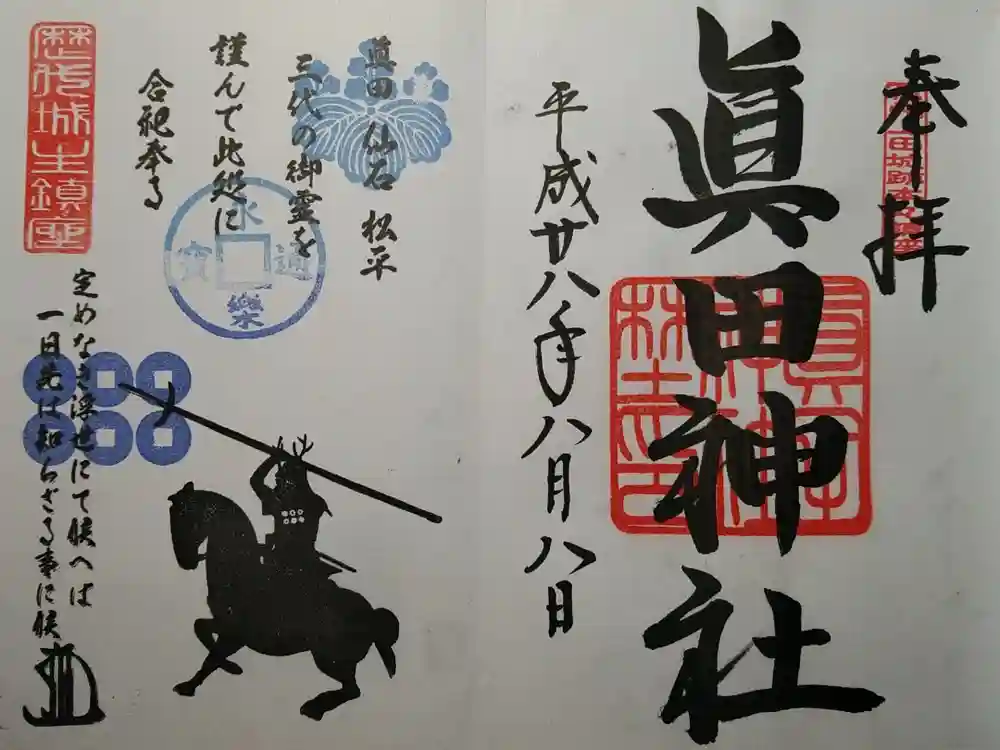 奉拝
眞田神社
平成廿八年八月八日
眞田 仙石 松平
三代の御霊を
謹んで此処に
合祀奉る
永樂通寶
歴代城主鎮座
定めなき浮世にて候へは
一日先は知らざる事に候